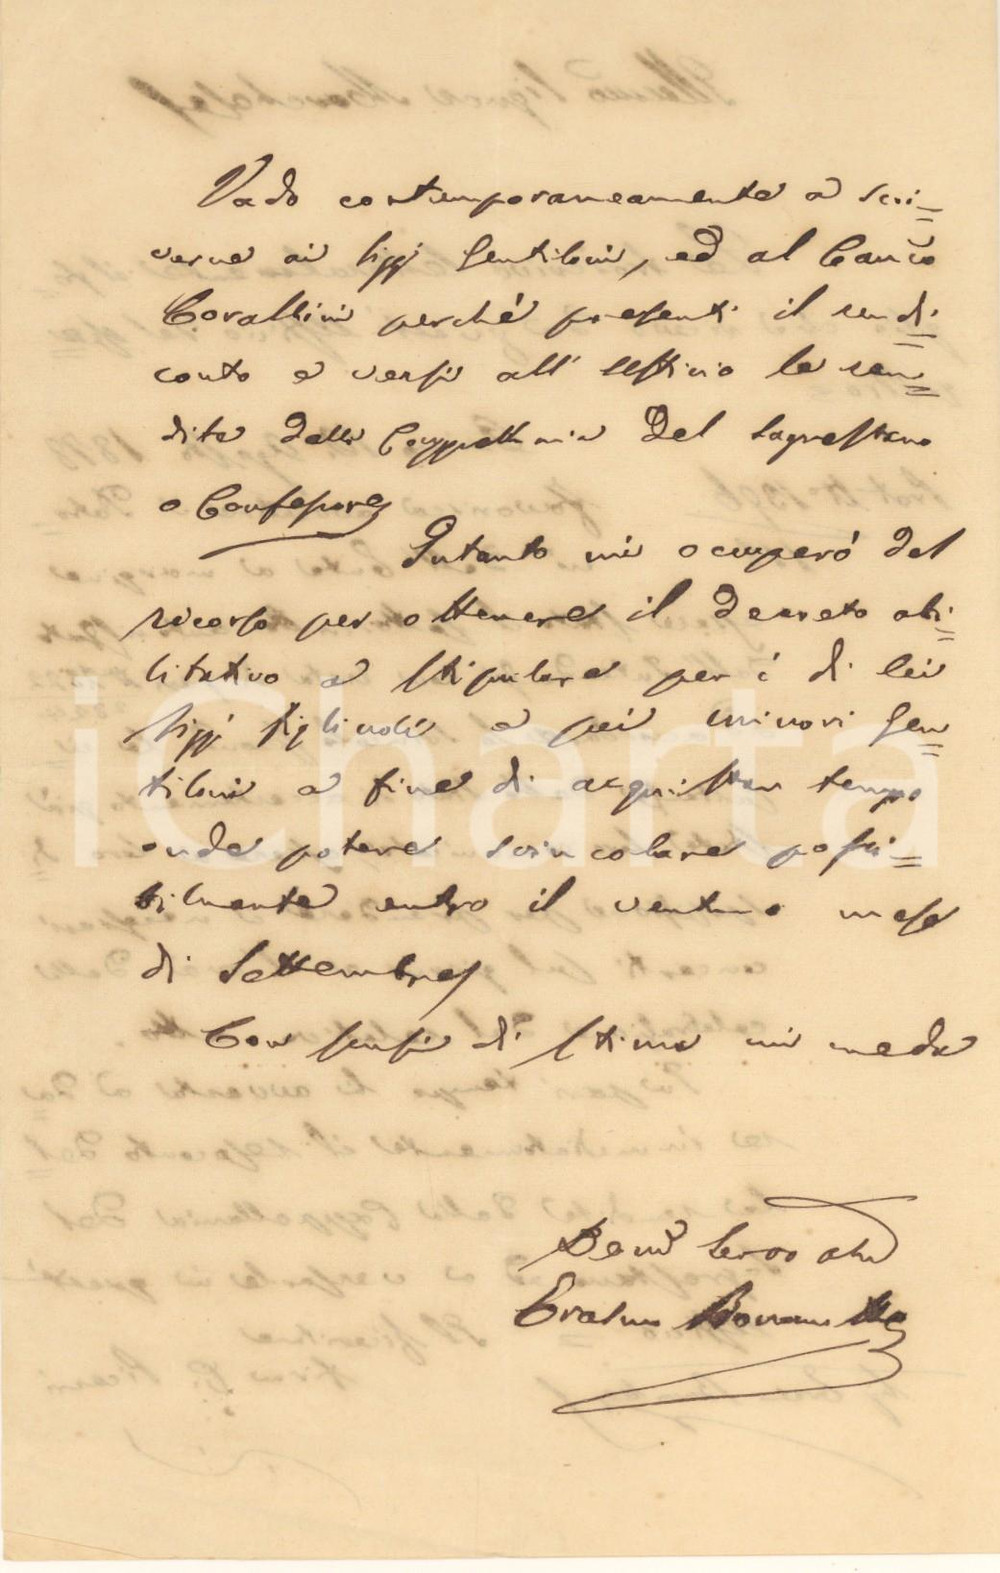 Vado contemporaneamente a scri=
verne ai Sigg. Gentiloni, ed al Can.co
Corallini perché presenti il rendi=
conto e versi all' Uffizio le ren=
dite della Cappellania del Sagrestano
o Confessore
Intanto mi occuperò del
ricorso per ottenere il decreto abi=
litativo a stipulare per i di lei
Sigg. figliuoli e pei minori Gen=
tiloni a fine di acquistar tempo
onde potere svincolare possi=
bilmente entro il venturo mese
di Settembre
Con sensi di stima mi creda
Dev.mo Servo
Erasmo
iCharta